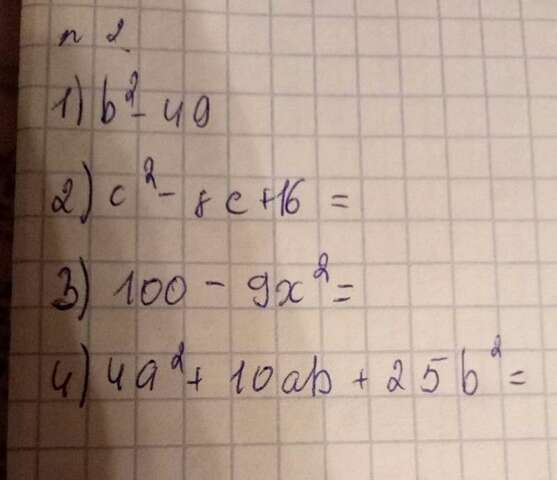 n 2
1) b² - 49
2) c² - 8c + 16 =
3) 100 - 9x² =
4) 4a² + 10ab + 25b² =